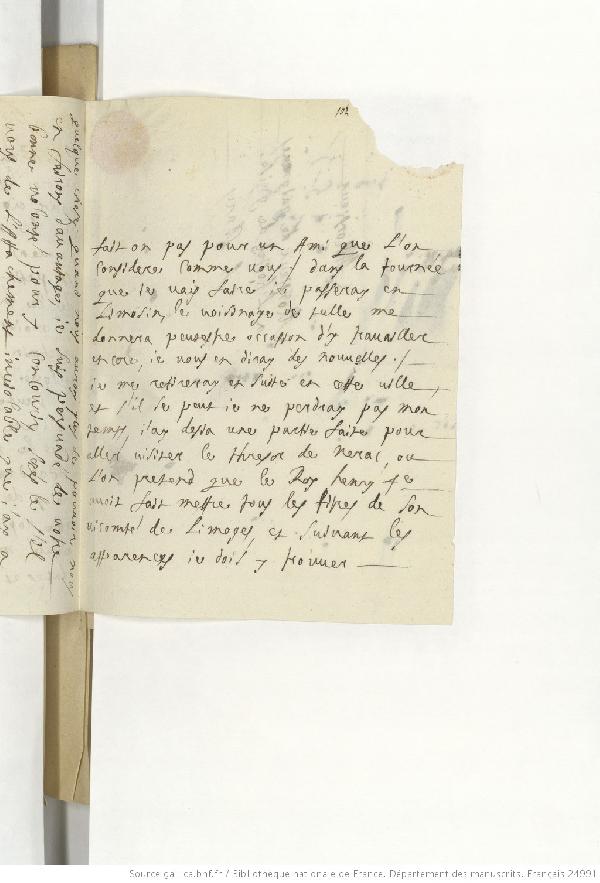 192
fait on pas pour un Ami que L'on
Considere Comme vous / dans la tournée
que ie vais faire ie passeray en
Limosin, le voisinage de tulle me
donnera peutestre occasion d'y travailler
encore, ie vous en diray des nouvelles ./
ie me retireray en suite en cette ville,
et s'il se peut ie ne perdray pas mon
temps, i'ay desia une partie faite pour
aller visiter le thresor de nerac, ou
L'on pretend que le Roy henry 4e
avoit fait mettre tous les titres de son
vicomté de Limoges, et suivant les
apparences ie dois y trouver
quelque chose quand nous aurons
en faisons davantages, ie suis persuadé de votre
bonne volonté pour y Concourir
vous de L'attachement inviolable que i'ay a
Source gallica.bnf.fr / Bibliothèque nationale de France. Département des manuscrits. Français 24991